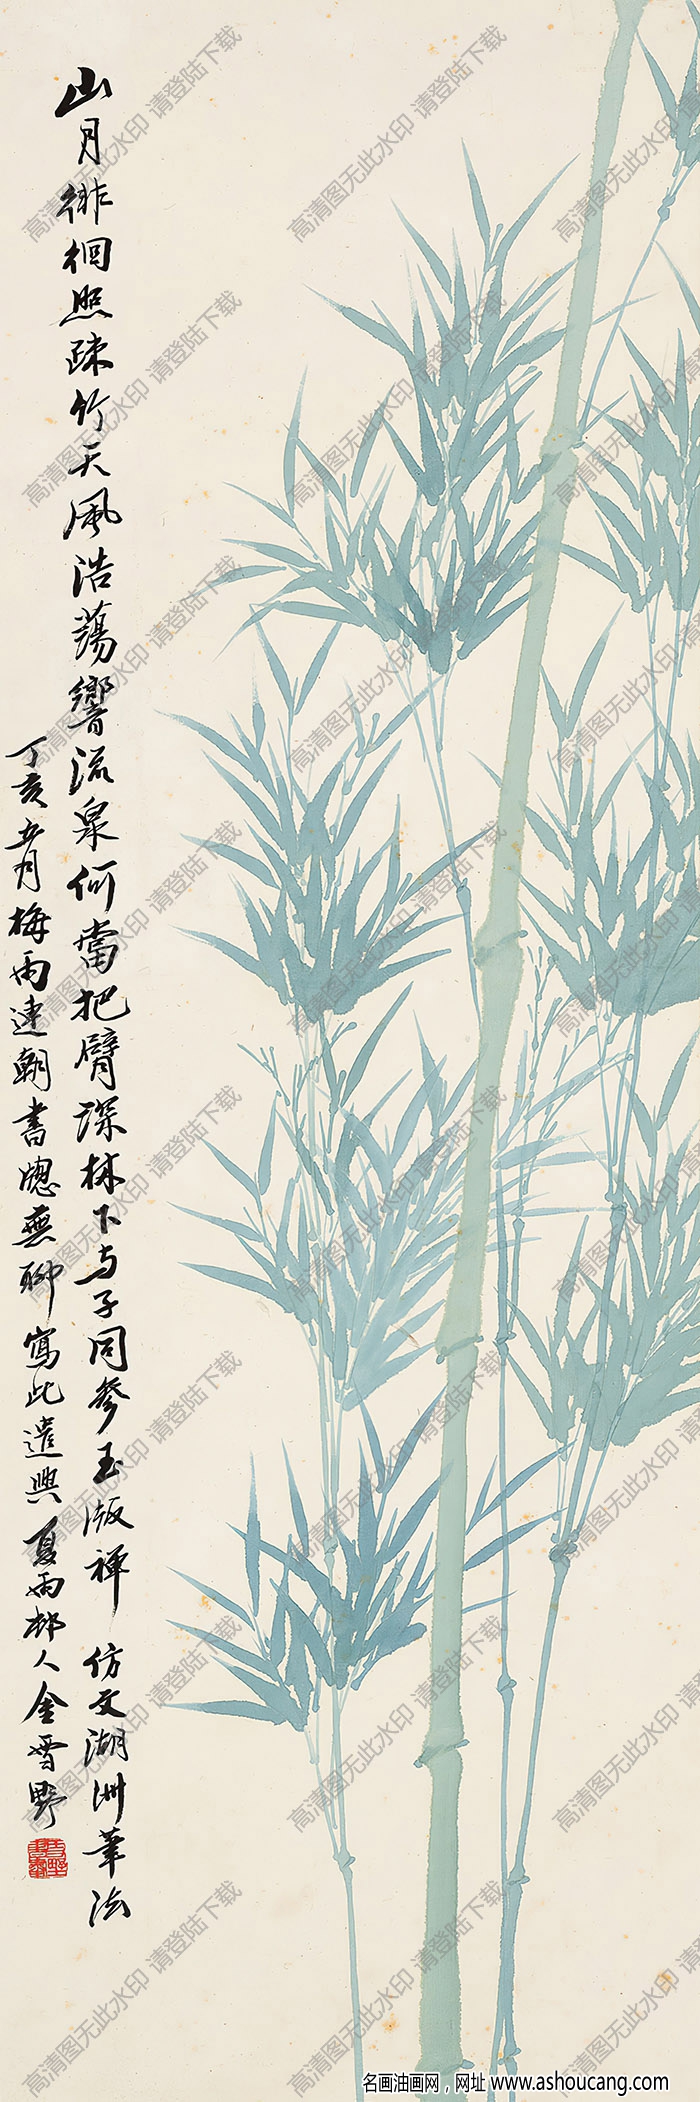 山月徘徊照疎竹天風浩蕩響流泉何當把臂深林下与子同參玉版禪 仿文湖洲筆法
丁亥五月梅雨連朝書窗無聊寫此遣興夏雨邨人金雪野
高清图无此水印 请登陆下载
名画油画网，网址 www.ashoucang.com